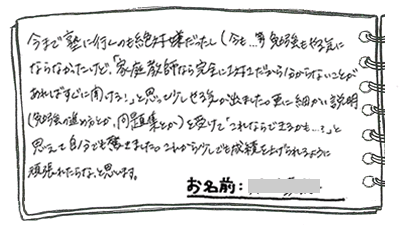 今まで塾に行くのも絶対嫌だったし(今も…)勉強もやる気に
ならなかったけど、「家庭教師なら完全に1対1だから分からないことが
あればすぐに聞ける!」と思って少しやる気が出ました。更に細かい説明
(勉強の進め方とか、問題集とか)を受けて「これならできるかも…?」と
思えて自分でも驚きました。これから少しでも成績を上げられるように
頑張れたらな、と思います。
お名前: